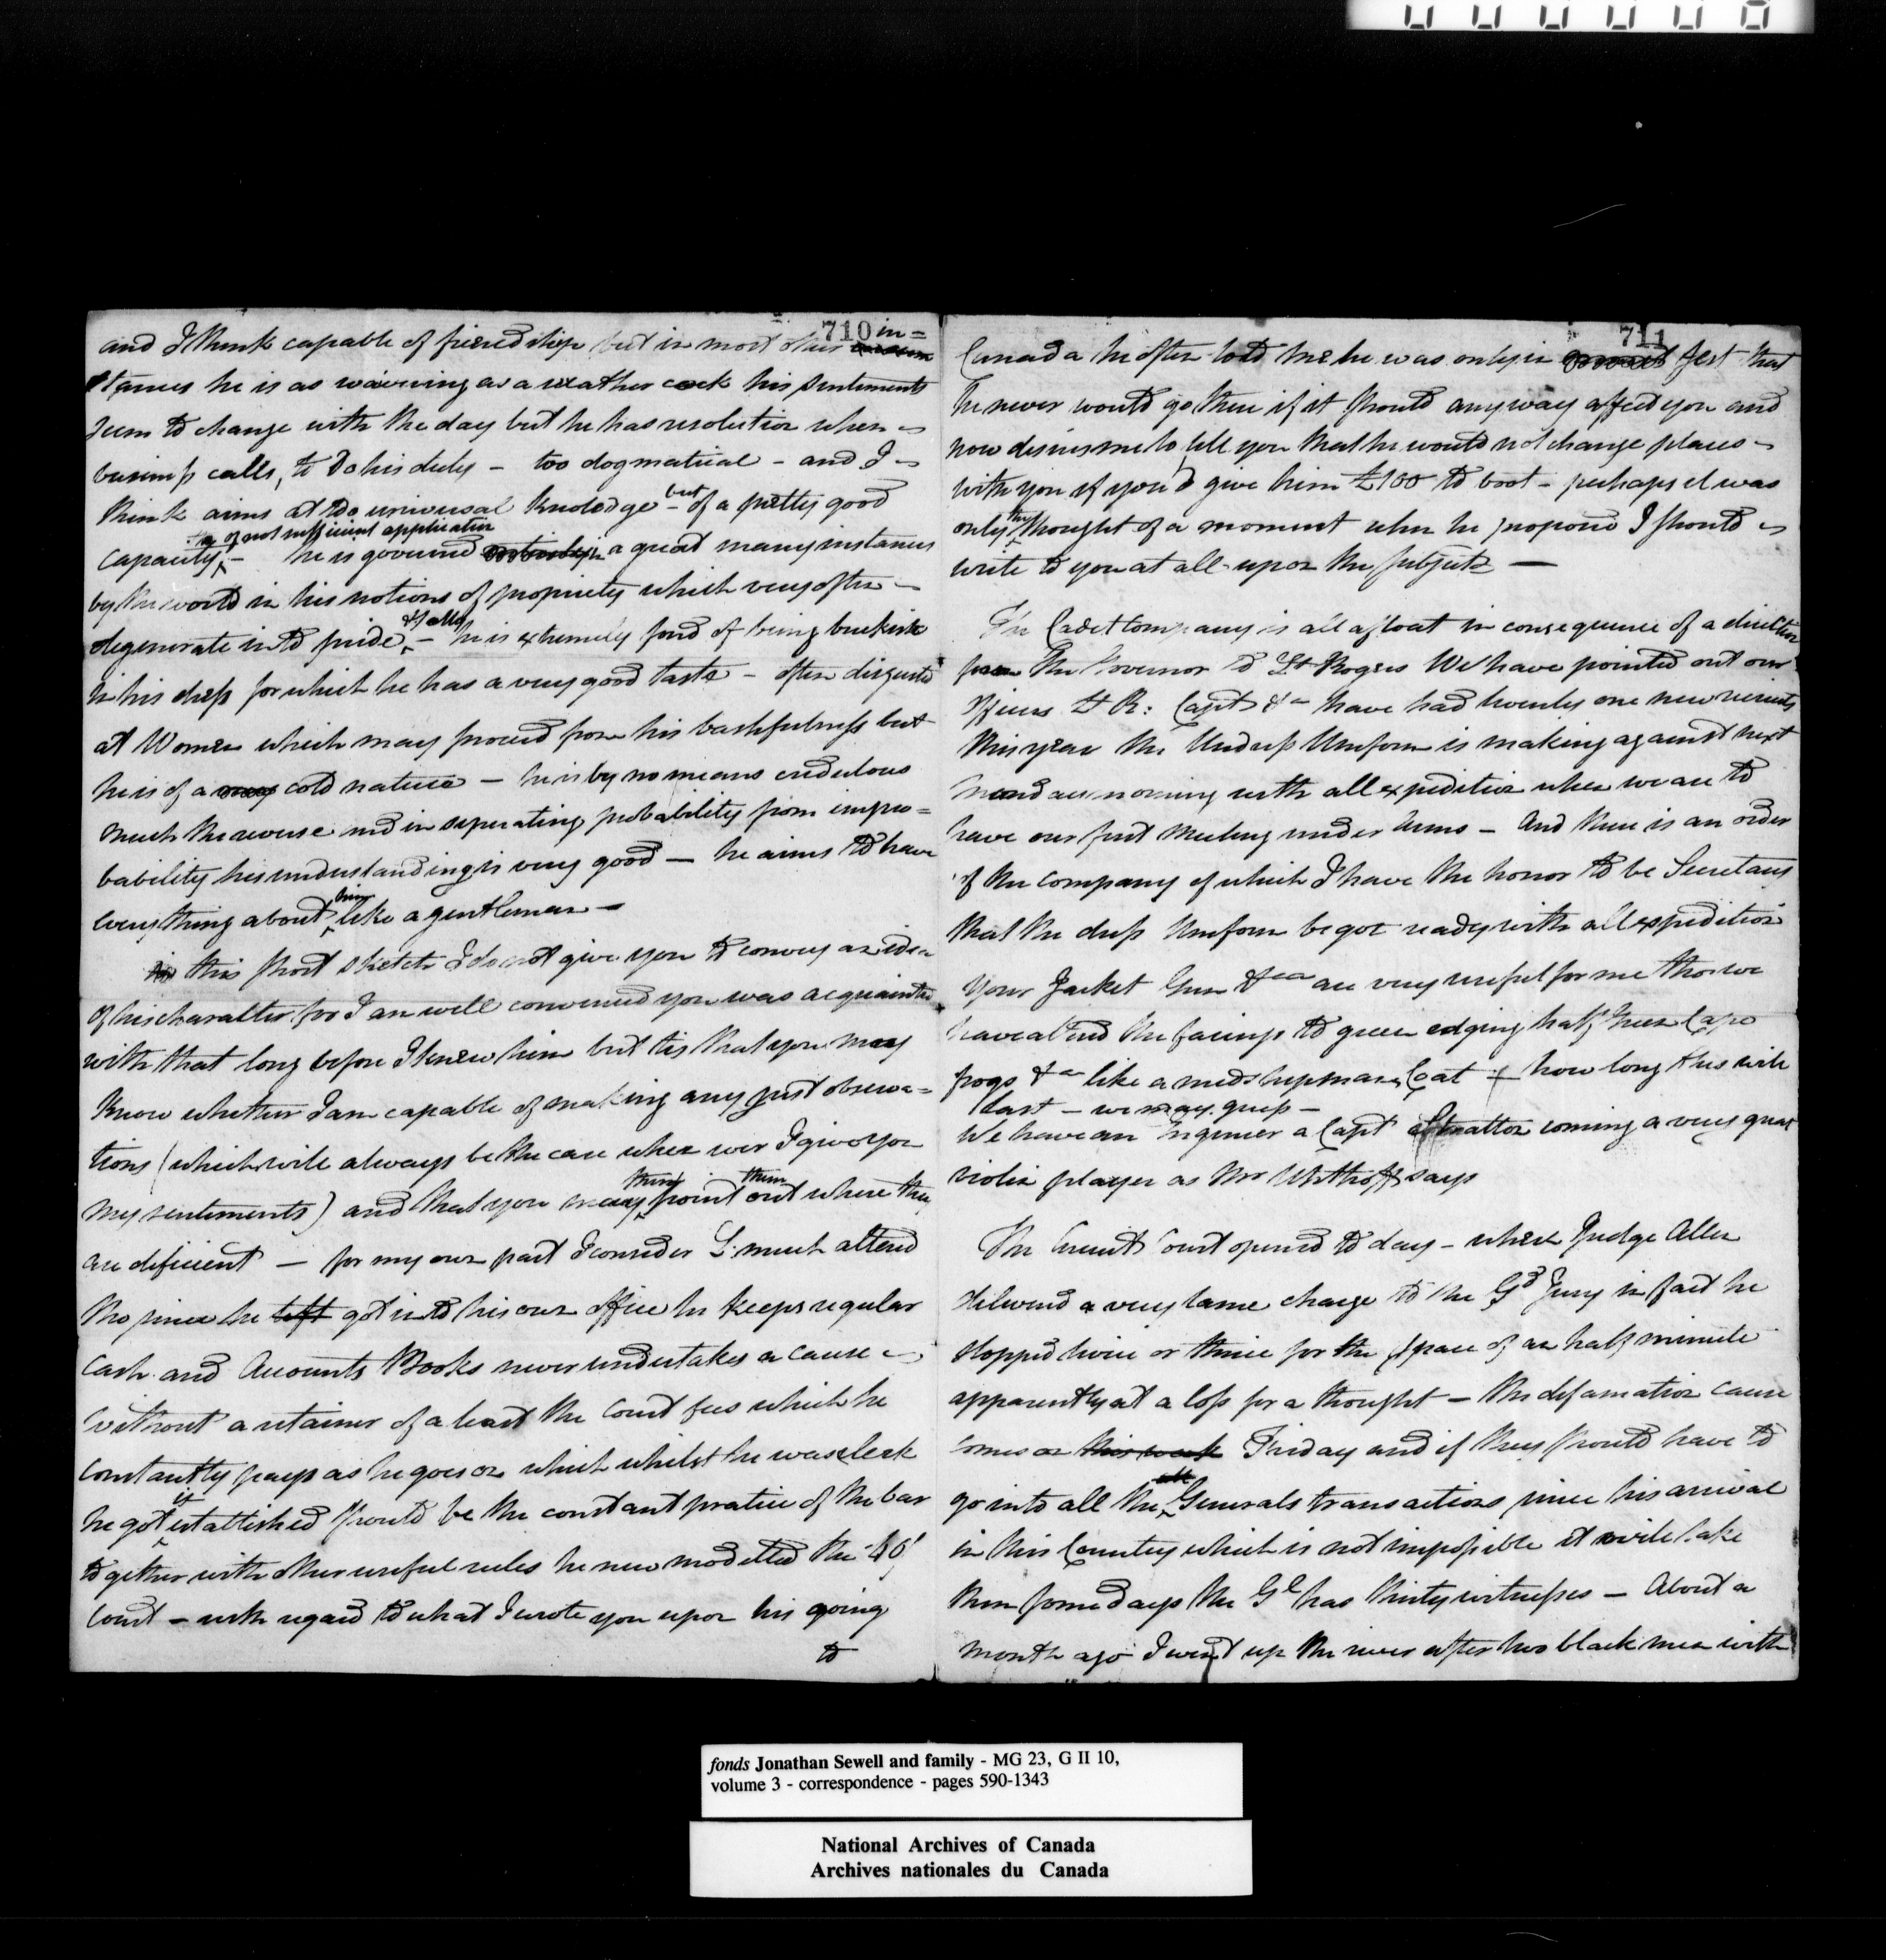 710
and I think capable of friendship but in most other in=
stances he is as wavering as a weather cock his sentiments
seem to change with the day but he has resolution when
business calls, to do his duty - too dogmatical - and I
think aims at too universal knowledge - but of a pretty good
capacity, - tho of not sufficient application he is governed in a great many instances
by the world in his notions of propriety which very often
degenerate into pride & folly - he is extremely fond of being buckish
in his dress for which he has a very good taste - often disgusted
at Women which may proceed from his bashfulness but
he is of a very cold nature - he is by no means credulous
much the reverse and in seperating probability from impro=
bability his understanding is very good - he aims to have
every thing about him like a gentleman -
this short sketch I do not give you to convey an idea
of his charatter for I am well convinced you was acquainted
with that long before I knew him but tis that you may
know whether I am capable of making any just observa=
tions (which will always be the case when ever I give you
my sentiments) and that you may point them out where they
are deficient - for my own part I consider L: much altered
tho since he left got into his own office he keeps regular
Cash and Accounts Books never undertakes a cause
without a retainer of a least the Court fees which he
constantly pays as he goes on which whilst he was clerk
he got it established should be the constant pratice of the bar
together with other useful rules he new modelled the
Court - with regard to what I wrote you upon his going
to
711
Canada he often told me he was only in jest that
he never would go there if it should any way affect you and
now desires me to tell you that he would not change places
with you if you'd give him £100 to boot - perhaps it was
only the thought of a moment when he proposed I should
write to you at all upon the subject -
The Cadet Company is all afloat in consequence of a direction
from the Governor to Lt Rogers We have pointed out our
Officers Lt R: Capt &a have had twenty one new recruits
this year the Undress Uniform is making against next
morning with all expedition when we are to
have our first meeting under Arms - And there is an order
of the company of which I have the honor to be Secretary
that the dress Uniform be got ready with all expedition
Your Jacket Gun &ca are very useful for me tho we
have altered the facings to green edging half green Cape
frogs &a like a midshipmans Coat - how long this will
last - we may guess -
We have an Ingineer a Capt Stratton coming a very great
violin player as Mr Whitloff says
The Circuit Court opened to day - where Judge Allen
delivered a very lame charge to the Gd Jury in fact he
stopped twice or thrice for the space of an half minute
apparently at a loss for a thought - the defamation cause
comes on this week Friday and if they should have to
go into all the Generals transactions since his arrival
in this Country which is not impossible it will take
them some days the Gl has thirty witnesses - About a
month ago I went up the river after two black men with
fonds Jonathan Sewell and family - MG 23, G II 10,
volume 3 - correspondence - pages 590-1343
National Archives of Canada
Archives nationales du Canada